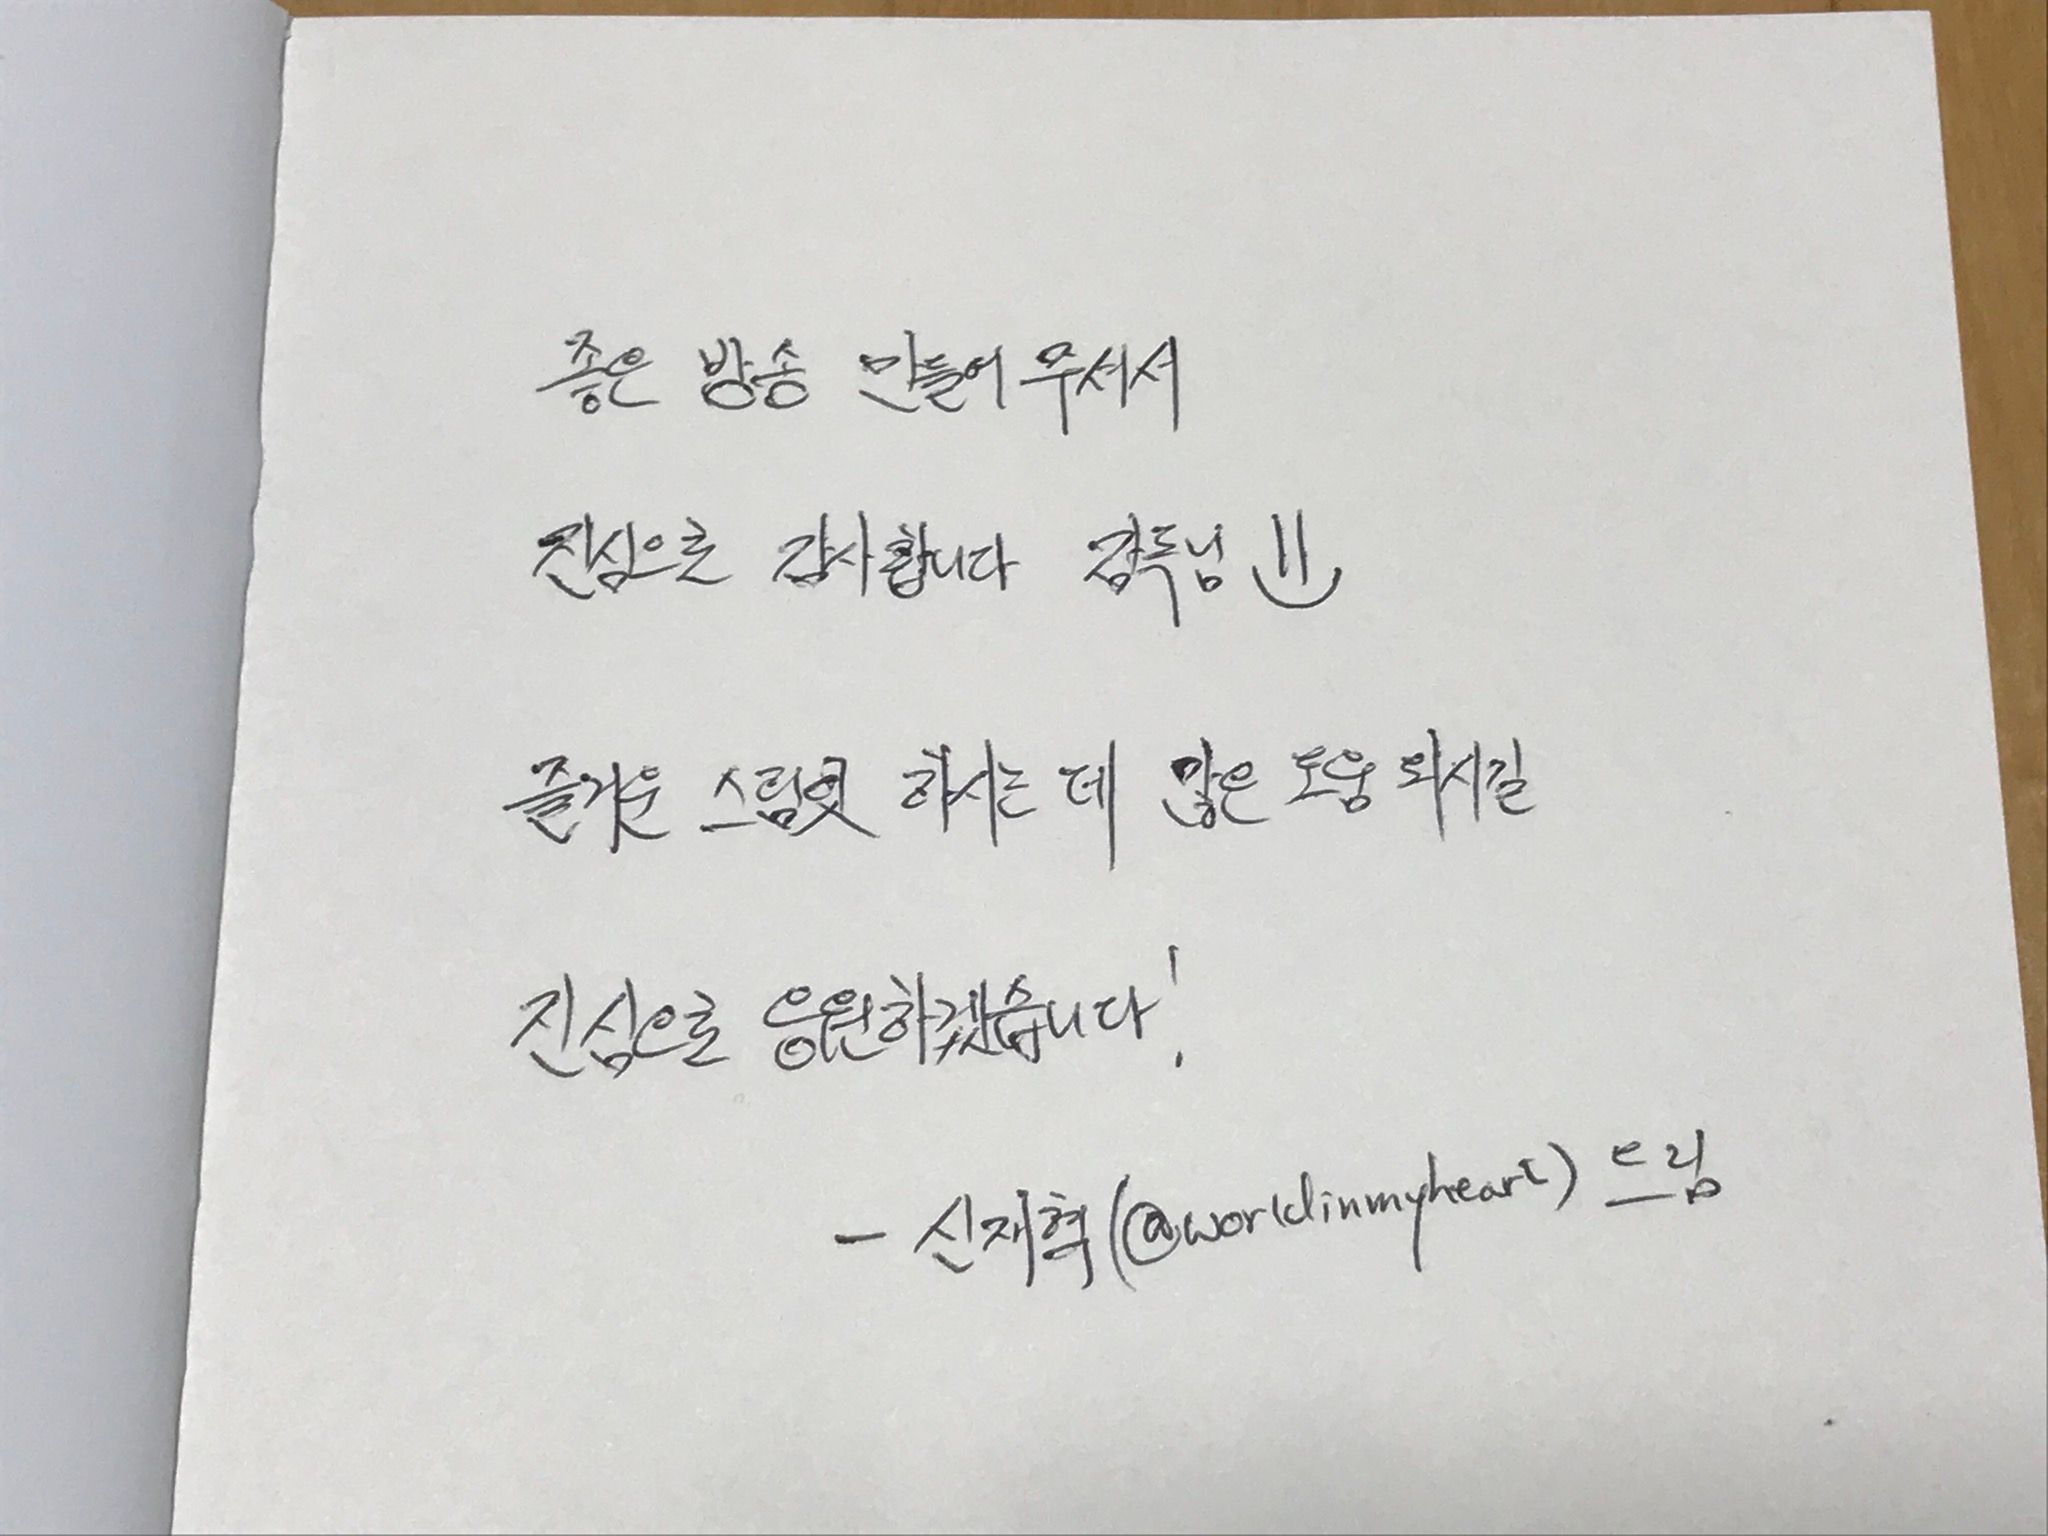 좋은 방송 만들어 주셔서
진심으로 감사합니다 감독님
즐거운 스팀잇 하시는 데 많은 도움 되시길
진심으로 응원하겠습니다!
- 신재혁(@worldinmyheart) 드림